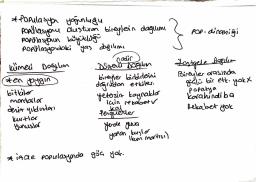 *Populasyon yoğunluğu
Populasyonu oluşturan bireylerin dağılımı
Populasyonun büyüklüğü
Populasyondaki yaş dağılımı
POP-dinamiği
Kümeli Dağılım
*en yaygın
bitkiler
mantarlar
deniz yıldızları
kurtlar
yunuslar
nadir
Düzenli Dağılım
bireyler birbirlerini
doğrudan etkiler
yetersiz kaynaklar
için rekabet
Penguenler
yerde yuva
yapan kuşlar
(kum martısı)
Rastgele Dağılım
Bireyler arasında
güçlü bir etk. yok
papatya
karahindiba
rekabet yok
populasyonda göç yok.